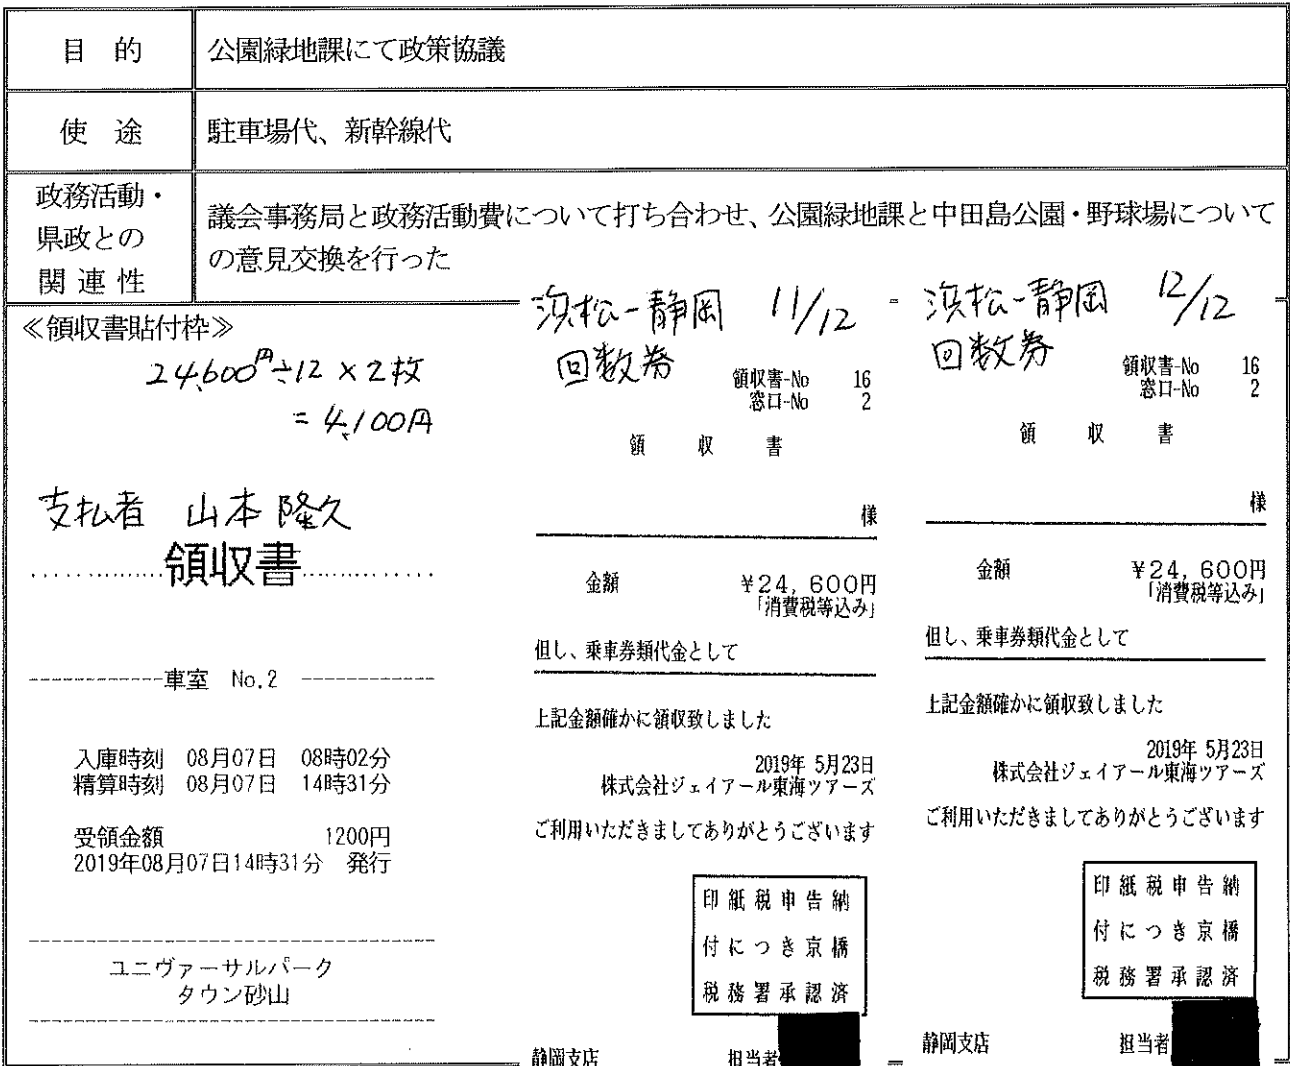 目 的
公園緑地課にて政策協議
使 途
駐車場代、新幹線代
政務活動・
県政との
関 連 性
議会事務局と政務活動費について打ち合わせ、公園緑地課と中田島公園・野球場について
の意見交換を行った
≪領収書貼付枠≫
24,600円÷12×2枚
=4,100円
支払者 山本隆久
領収書
車室 No.2
入庫時刻 08月07日 08時02分
精算時刻 08月07日 14時31分
受領金額 1200円
2019年08月07日14時31分 発行
ユニヴァーサルパーク
タウン砂山
浜松-静岡 11/12
回数券
領収書-No 16
窓口-No 2
領 収 書
様
金額 ¥24,600円
「消費税等込み」
但し、乗車券類代金として
上記金額確かに領収致しました
2019年 5月23日
株式会社ジェイアール東海ツアーズ
ご利用いただきましてありがとうございます
印紙税申告納
付につき京橋
税務署承認済
静岡支店 担当者
浜松-静岡 12/12
回数券
領収書-No 16
窓口-No 2
領 収 書
様
金額 ¥24,600円
「消費税等込み」
但し、乗車券類代金として
上記金額確かに領収致しました
2019年 5月23日
株式会社ジェイアール東海ツアーズ
ご利用いただきましてありがとうございます
印紙税申告納
付につき京橋
税務署承認済
静岡支店 担当者